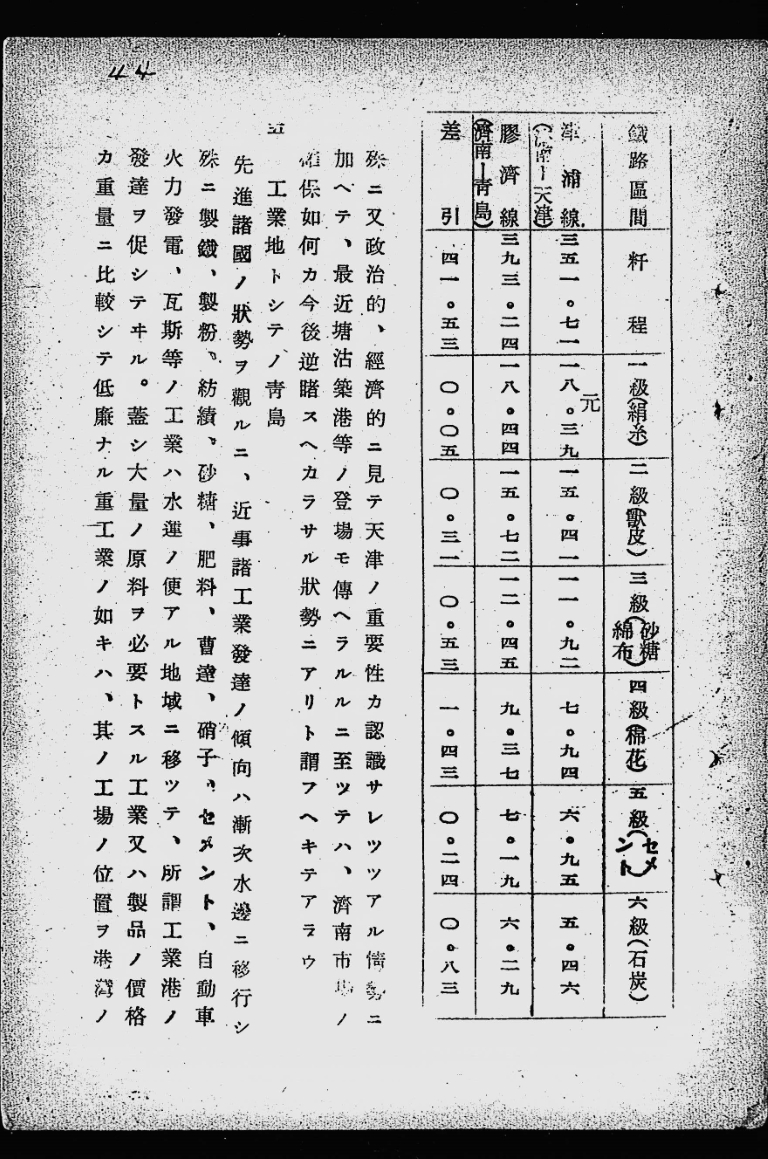 44
鐵路區間 粁程 一級(絹糸) 二級(獸皮) 三級(砂糖綿布) 四級(棉花) 五級(セメント) 六級(石炭)
津浦線(濟南ー天津) 三五一。七一 一八。三九元 一五。四一 一一。九二 七。九四 六。九五 五。四六
膠濟線(濟南ー青島) 三九三。二四 一八。四四 一五。七二 一二。四五 九。三七 七。一九 六。二九
差引 四一。五三 〇。〇五 〇。三一 〇。五三 一。四三 〇。二四 〇。八三
殊ニ又政治的、經濟的ニ見テ天津ノ重要性カ認識サレツツアル情勢ニ
加ヘテ、最近塘沽築港等ノ登場モ傳ヘラルルニ至ツテハ、濟南市場ノ
確保如何カ今後逆睹スヘカラサル狀勢ニアリト謂フヘキテアラウ
五 工業地トシテノ青島
先進諸國ノ狀勢ヲ觀ルニ、近事諸工業發達ノ傾向ハ漸次水邊ニ移行シ
殊ニ製鐵、製粉、紡績、砂糖、肥料、曹達、硝子、セメント、自動車
火力發電、瓦斯等ノ工業ハ水運ノ便アル地域ニ移ツテ、所謂工業港ノ
發達ヲ促シテヰル。蓋シ大量ノ原料ヲ必要トスル工業又ハ製品ノ價格
カ重量ニ比較シテ低廉ナル重工業ノ如キハ、其ノ工場ノ位置ヲ港灣ノ